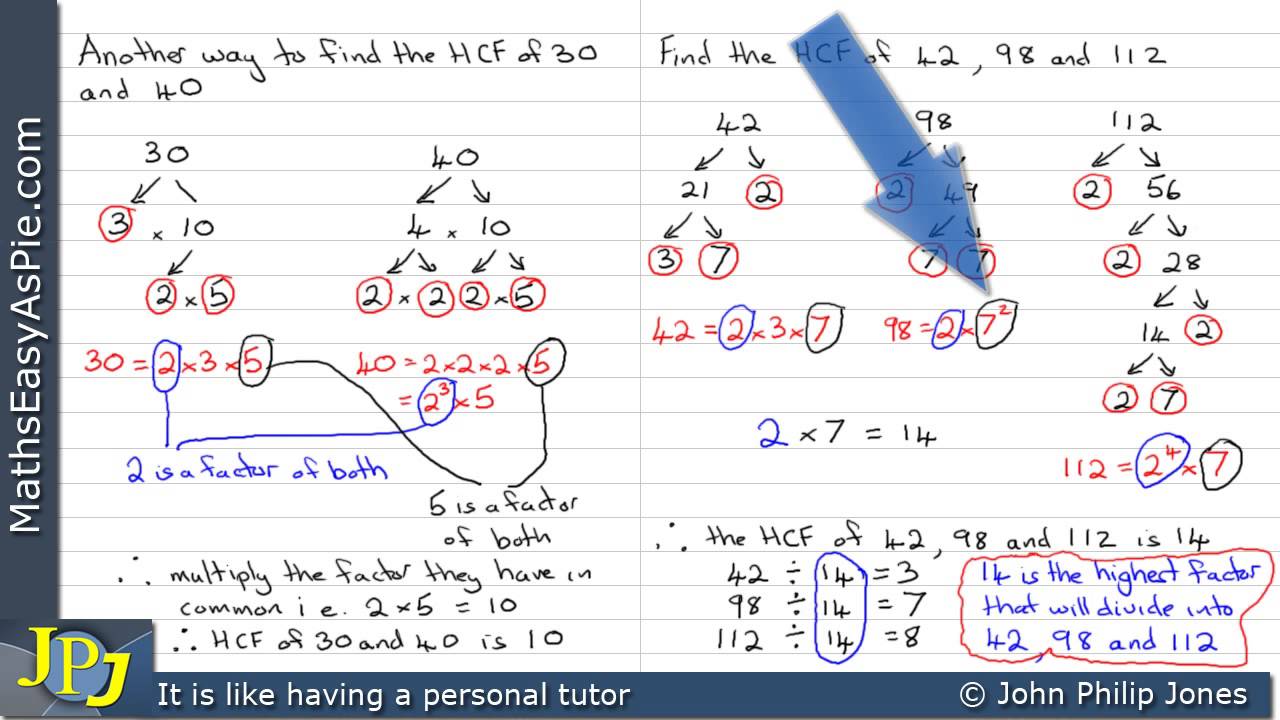 MathsEasyAsPie.com
Another way to find the HCF of 30
and 40
30
3 × 10
2 × 5
30 = 2 × 3 × 5
40
4 × 10
2 × 2 2 × 5
40 = 2 × 2 × 2 × 5
= 2³ × 5
2 is a factor of both
5 is a factor
of both
∴ multiply the factor they have in
common i e. 2 × 5 = 10
∴ HCF of 30 and 40 is 10
Find the HCF of 42, 98 and 112
42
21 2
3 7
42 = 2 × 3 × 7
98
2 49
7 7
98 = 2 × 7²
112
2 56
2 28
14 2
2 7
112 = 2⁴ × 7
2 × 7 = 14
∴ the HCF of 42, 98 and 112 is 14
42 ÷ 14 = 3
98 ÷ 14 = 7
112 ÷ 14 = 8
14 is the highest factor
that will divide into
42, 98 and 112
JPJ
It is like having a personal tutor
© John Philip Jones